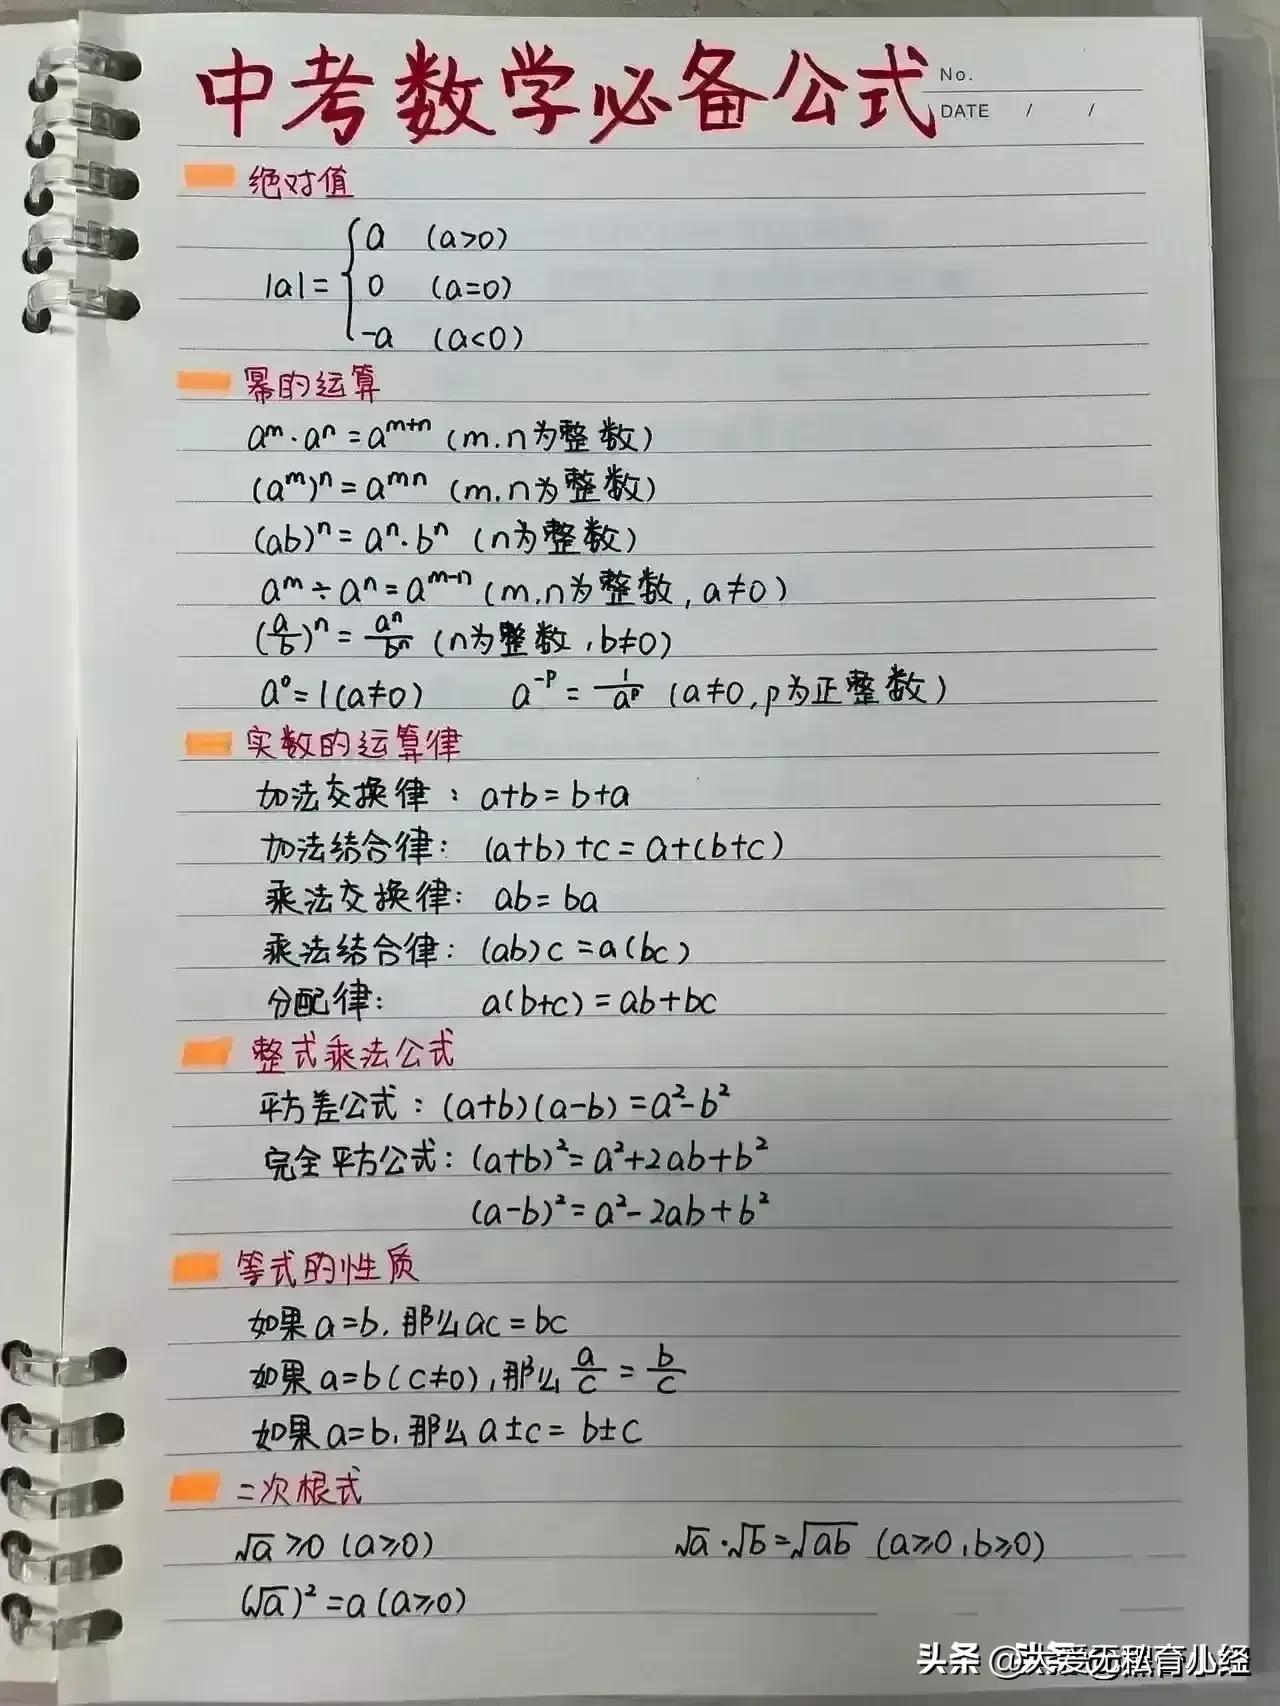 中考数学必备公式
No.
DATE / /
绝对值
|a|={a (a>0)
0 (a=0)
-a (a<0)
幂的运算
aᵐ·aⁿ=aᵐ⁺ⁿ (m,n为整数)
(aᵐ)ⁿ=aᵐⁿ (m,n为整数)
(ab)ⁿ=aⁿ·bⁿ (n为整数)
aᵐ÷aⁿ=aᵐ⁻ⁿ (m,n为整数,a≠0)
(a/b)ⁿ=aⁿ/bⁿ (n为整数,b≠0)
a⁰=1(a≠0) a⁻ᵖ=1/aᵖ (a≠0,p为正整数)
实数的运算律
加法交换律:a+b=b+a
加法结合律:(a+b)+c=a+(b+c)
乘法交换律:ab=ba
乘法结合律:(ab)c=a(bc)
分配律:a(b+c)=ab+bc
整式乘法公式
平方差公式:(a+b)(a-b)=a²-b²
完全平方公式:(a+b)²=a²+2ab+b²
(a-b)²=a²-2ab+b²
等式的性质
如果a=b,那么ac=bc
如果a=b(c≠0),那么a/c=b/c
如果a=b,那么a±c=b±c
二次根式
√a≥0 (a≥0) √a·√b=√ab (a≥0,b≥0)
(√a)²=a(a≥0)
头条 @大爱无私育小经